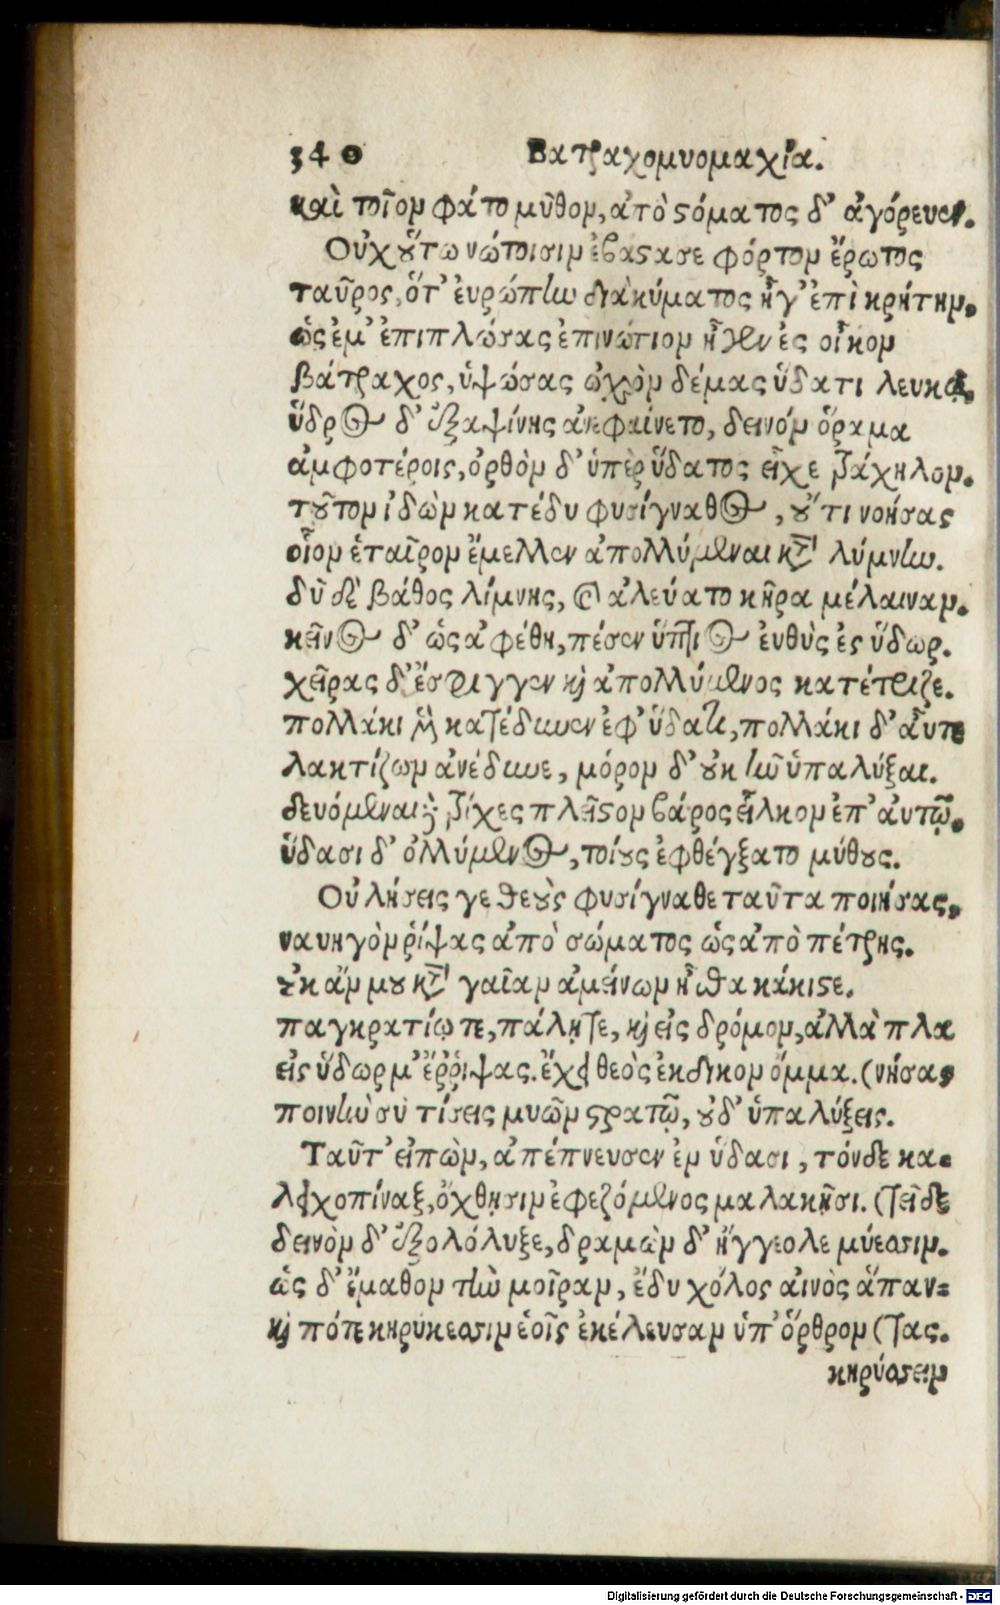 340 Βατραχομυομαχία.
καὶ τοῖον φάτο μῦθον, ἀπὸ ϛόματος δ' ἀγόρευεν.
Οὐχ οὕτω νώτοισιν ἐβάϛασε φόρτον ἔρωτος
ταῦρος, ὅτ' ἐυρώπην διὰ κύματος ἦγ' ἐπὶ κρήτην.
ὡς ἐμ' ἐπιπλώσας ἐπινώτιον ἦγεν ἐς οἶκον
βάτραχος, ὑψώσας ὠχρὸν δέμας ὕδατι λευκῷ.
ὕδρος δ' ἐξαψίνης ἀνεφαίνετο, δεινόν ὅραμα
ἀμφοτέροις, ὀρθὸν δ' ὑπὲρ ὕδατος εἶχε τράχηλον.
τοῦτον ἰδὼν κατέδυ φυσίγναθος, οὔτι νοήσας
οἷον ἑταῖρον ἔμελλεν ἀπολλύμεναι κατὰ λύμνην.
δῦ δὲ βάθος λίμνης, καὶ ἀλεύατο κῆρα μέλαιναν.
κεῖνος δ' ὡς ἀφέθη, πέσεν ὕπτιος ἐυθὺς ἐς ὕδωρ.
χεῖρας δ' ἔσφιγγεν καὶ ἀπολλύμενος κατέτριζε.
πολλάκι μὲν κατέδυνεν ἐφ' ὕδατι, πολλάκι δ' αὖτε
λακτίζων ἀνέδυνε, μόρον δ' οὐκ ἦν ὑπαλύξαι.
δευόμεναι δὲ τρίχες πλεῖϛον βάρος εἷλκον ἐπ' ἀυτῷ.
ὕδασι δ' ὀλλύμενος, τοίους ἐφθέγξατο μύθους.
Οὐ λήσεις γε θεοὺς φυσίγναθε ταῦτα ποιήσας,
ναυηγὸν ῥίψας ἀπὸ σώματος ὡς ἀπὸ πέτρης.
ἐκ ἄν μου κατὰ γαῖαν ἀμείνων ἦσθα κάκιϛε.
παγκρατίῳ τε, πάλῃ τε, καὶ εἰς δρόμον, ἀλλὰ πλα
εἰς ὕδωρ μ' ἔῤῥιψας. ἔχει θεὸς ἐκδικον ὄμμα. (νήσας
ποινὴν σὺ τίσεις μυῶν ϛρατῷ, οὐδ' ὑπαλύξεις.
Ταῦτ' εἰπὼν, ἀπέπνευσεν ἐν ὕδασι, τόνδε κα-
λειχοπίναξ, ὄχθῃσιν ἐφεζόμενος μαλακῇσι. (τεῖδε
δεινὸν δ' ἐξολόλυξε, δραμὼν δ' ἤγγειλε μύεσσιν.
ὡς δ' ἔμαθον τὴν μοῖραν, ἔδυ χόλος αἰνὸς ἅπαν-
καὶ πότε κηρύκεσσιν ἑοῖς ἐκέλευσαν ὑπ' ὄρθρον (τας.
κηρύσσειν
Digitalisierung gefördert durch die Deutsche Forschungsgemeinschaft - DFG